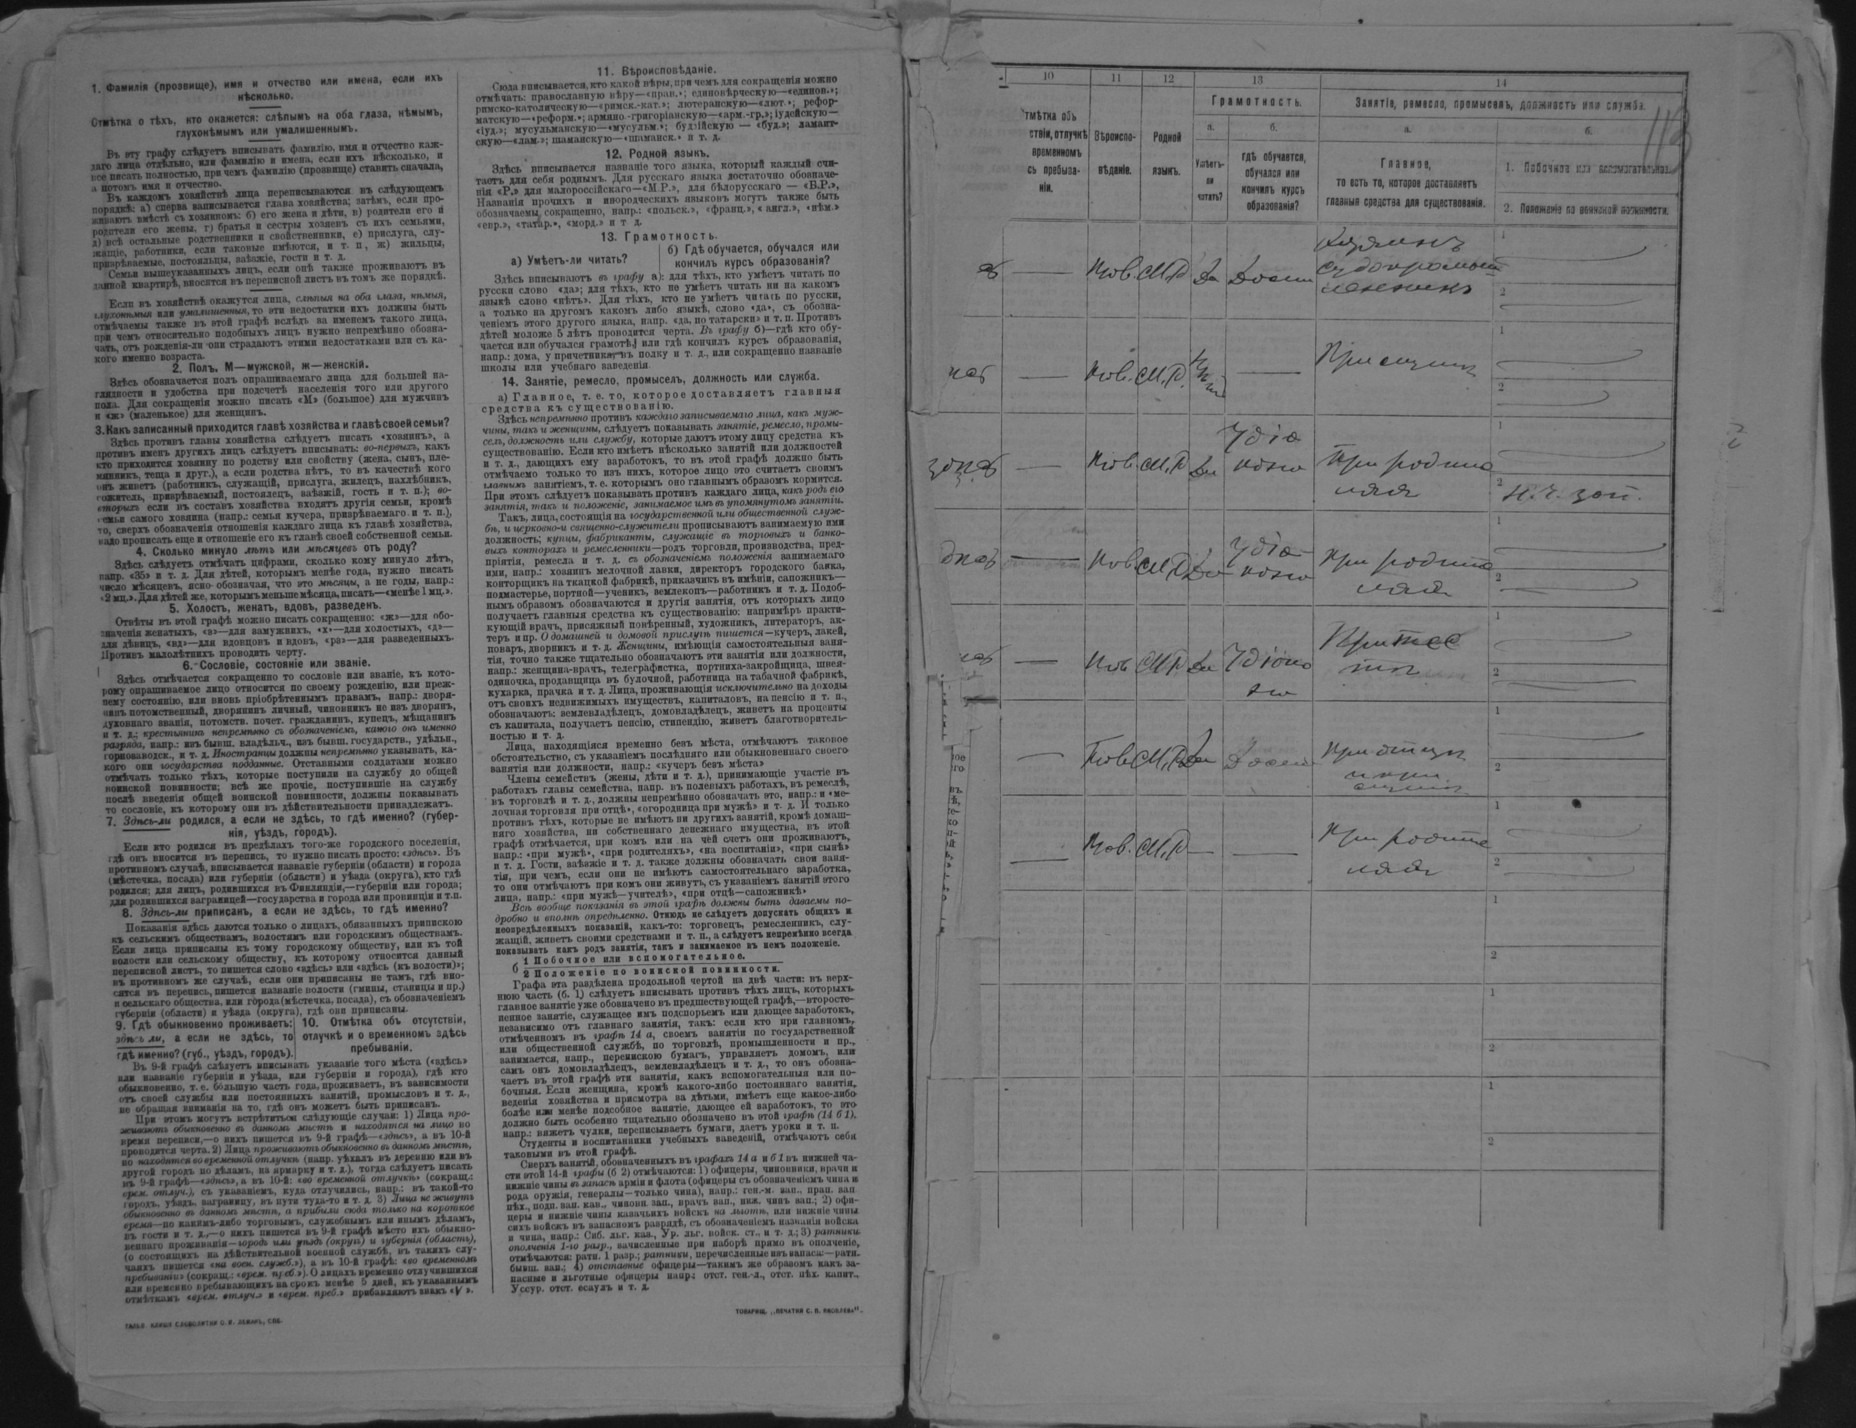 1. Фамилія (прозвище), имя и отчество или имена, если ихъ
нѣсколько.
Отмѣтка о тѣхъ, кто окажется: слѣпымъ на оба глаза, нѣмымъ,
глухонѣмымъ или умалишеннымъ.
Въ эту графу слѣдуетъ вписывать фамилію, имя и отчество каж-
даго лица отдѣльно, или фамилію и имена, если ихъ нѣсколько, и
все писать полностью, при чемъ фамилію (прозвище) ставить сначала,
а потомъ имя и отчество.
Въ каждомъ хозяйствѣ лица переписываются въ слѣдующемъ
порядкѣ: а) сперва записывается глава хозяйства; затѣмъ, если про-
живаютъ вмѣстѣ съ хозяиномъ: б) его жена и дѣти, в) родители его и
родители его жены, г) братья и сестры хозяевъ съ ихъ семьями,
д) всѣ остальные родственники и свойственники, е) прислуга, слу-
жащіе, работники, если таковые имѣются, и т. п., ж) жильцы,
призрѣваемые, постояльцы, заѣзжіе, гости и т. д.
Семьи вышеуказанныхъ лицъ, если онѣ также проживаютъ въ
данной квартирѣ, вносятся въ переписной листъ въ томъ же порядкѣ.
Если въ хозяйствѣ окажутся лица, слѣпыя на оба глаза, нѣмыя,
глухонѣмыя или умалишенныя, то эти недостатки ихъ должны быть
отмѣчаемы также въ этой графѣ вслѣдъ за именемъ такого лица,
при чемъ относительно подобныхъ лицъ нужно непремѣнно обозна-
чать, отъ рожденія-ли они страдаютъ этими недостатками или съ ка-
кого именно возраста.
2. Полъ. М—мужской, ж—женскій.
Здѣсь обозначается полъ опрашиваемаго лица для большей на-
глядности и удобства при подсчетѣ населенія того или другого
пола. Для сокращенія можно писать «М» (большое) для мужчинъ
и «ж» (маленькое) для женщинъ.
3. Какъ записанный приходится главѣ хозяйства и главѣ своей семьи?
Здѣсь противъ главы хозяйства слѣдуетъ писать «хозяинъ», а
противъ именъ другихъ лицъ слѣдуетъ вписывать: во-первыхъ, какъ
кто приходится хозяину по родству или свойству (жена, сынъ, пле-
мянникъ, теща и друг.), а если родства нѣтъ, то въ качествѣ кого
онъ живетъ (работникъ, служащій, прислуга, жилецъ, нахлѣбникъ,
сожитель, призрѣваемый, постоялецъ, заѣзжій, гость и т. п.); во-
вторыхъ если въ составъ хозяйства входятъ другія семьи, кромѣ
семьи самого хозяина (напр.: семья кучера, призрѣваемаго и т. п.),
то, сверхъ обозначенія отношенія каждаго лица къ главѣ хозяйства,
надо прописать еще и отношеніе его къ главѣ своей собственной семьи.
4. Сколько минуло лѣтъ или мѣсяцевъ отъ роду?
Здѣсь слѣдуетъ отмѣчать цифрами, сколько кому минуло лѣтъ,
напр. «35» и т. д. Для дѣтей, которымъ менѣе года, нужно писать
число мѣсяцевъ, ясно обозначая, что это мѣсяцы, а не годы, напр.:
«2 мц.». Для дѣтей же, которымъ меньше мѣсяца, писать—«менѣе 1 мц.».
5. Холостъ, женатъ, вдовъ, разведенъ.
Отвѣты въ этой графѣ можно писать сокращенно: «ж»—для обо-
значенія женатыхъ, «з»—для замужнихъ, «х»—для холостыхъ, «д»—
для дѣвицъ, «вд»—для вдовцовъ и вдовъ, «рз»—для разведенныхъ.
Противъ малолѣтнихъ проводить черту.
6. Сословіе, состояніе или званіе.
Здѣсь отмѣчается сокращенно то сословіе или званіе, къ кото-
рому опрашиваемое лицо относится по своему рожденію, или преж-
нему состоянію, или вновь пріобрѣтеннымъ правамъ, напр.: дворя-
нинъ потомственный, дворянинъ личный, чиновникъ не изъ дворянъ,
духовнаго званія, потомств. почет. гражданинъ, купецъ, мѣщанинъ
и т. д.; крестьянинъ непремѣнно съ обозначеніемъ, какого онъ именно
разряда, напр.: изъ бывш. владѣльч., изъ бывш. государств., удѣльн.,
горнозаводск., и т. д. Иностранцы должны непремѣнно указывать, ка-
кого они государства подданные. Отставными солдатами можно
отмѣчать только тѣхъ, которые поступили на службу до общей
воинской повинности; всѣ же прочіе, поступившіе на службу
послѣ введенія общей воинской повинности, должны показывать
то сословіе, къ которому они въ дѣйствительности принадлежатъ.
7. Здѣсь-ли родился, а если не здѣсь, то гдѣ именно? (губер-
нія, уѣздъ, городъ).
Если кто родился въ предѣлахъ того-же городского поселенія,
гдѣ онъ вносится въ перепись, то нужно писать просто: «здѣсь». Въ
противномъ случаѣ, вписывается названіе губерніи (области) и города
(мѣстечка, посада) или губерніи (области) и уѣзда (округа), кто гдѣ
родился; для лицъ, родившихся въ Финляндіи,—губернія или города;
для родившихся заграницей—государства и города или провинціи и т.п.
8. Здѣсь-ли приписанъ, а если не здѣсь, то гдѣ именно?
Показанія здѣсь даются только о лицахъ, обязанныхъ припискою
къ сельскимъ обществамъ, волостямъ или городскимъ обществамъ.
Если лица приписаны къ тому городскому обществу, или къ той
волости или сельскому обществу, къ которому относится данный
переписной листъ, то пишется слово «здѣсь» или «здѣсь (къ волости)»;
въ противномъ же случаѣ, если они приписаны не тамъ, гдѣ вно-
сятся въ перепись, пишется названіе волости (гмины, станицы и пр.)
и сельскаго общества, или города (мѣстечка, посада), съ обозначеніемъ
губерніи (области) и уѣзда (округа), гдѣ они приписаны.
9. Гдѣ обыкновенно проживаетъ: здѣсь ли, а если не здѣсь, то гдѣ именно? (губ., уѣздъ, городъ).
10. Отмѣтка объ отсутствіи, отлучкѣ и о временномъ здѣсь пребываніи.
Въ 9-й графѣ слѣдуетъ вписывать указаніе того мѣста («здѣсь»
или названіе губерніи и уѣзда, или губерніи и города), гдѣ кто
обыкновенно, т. е. большую часть года, проживаетъ, въ зависимости
отъ своей службы или постоянныхъ занятій, промысловъ и т. д.,
не обращая вниманія на то, гдѣ онъ можетъ быть приписанъ.
При этомъ могутъ встрѣтиться слѣдующіе случаи: 1) Лица про-
живаютъ обыкновенно въ данномъ мѣстѣ и находятся на лицо во
время переписи,—о нихъ пишется въ 9-й графѣ—«здѣсь», а въ 10-й
проводится черта. 2) Лица проживаютъ обыкновенно въ данномъ мѣстѣ,
но находятся во временной отлучкѣ (напр. уѣхалъ въ деревню или въ
другой городъ по дѣламъ, на ярмарку и т. д.), тогда слѣдуетъ писать
въ 9-й графѣ—«здѣсь», а въ 10-й: «во временной отлучкѣ» (сокращ.:
врем. отлуч.), съ указаніемъ, куда отлучились, напр.: въ такой-то
городъ, уѣздъ, заграницу, въ пути туда-то и т. д. 3) Лица не живутъ
обыкновенно въ данномъ мѣстѣ, а прибыли сюда только на короткое
время—по какимъ-либо торговымъ, служебнымъ или инымъ дѣламъ,
въ гости и т. д.,—о нихъ пишется въ 9-й графѣ мѣсто ихъ обыкно-
веннаго проживанія—городъ или уѣздъ (округъ) и губернія (область),
(о состоящихъ на дѣйствительной военной службѣ, въ такихъ слу-
чаяхъ пишется «на воен. служб.»), а въ 10-й графѣ: «во временномъ
пребываніи» (сокращ.: «врем. преб.»). О лицахъ временно отлучившихся
или временно пребывающихъ на срокъ менѣе 5 дней, къ указаннымъ
отмѣткамъ «врем. отлуч.» и «врем. преб.» прибавляютъ знакъ «V».
11. Вѣроисповѣданіе.
Сюда вписывается, кто какой вѣры, при чемъ для сокращенія можно
отмѣчать: православную вѣру—«прав.»; единовѣрческую—«единов.»;
римско-католическую—«римск.-кат.»; лютеранскую—«лют.»; рефор-
матскую—«реформ.»; армяно-григоріанскую—«арм.-гр.»; іудейскую—
«іуд.»; мусульманскую—«мусульм.»; буддійскую — «буд.»; ламаит-
скую—«лам.»; шаманскую—«шаманск.» и т. д.
12. Родной языкъ.
Здѣсь вписывается названіе того языка, который каждый счи-
таетъ для себя роднымъ. Для русскаго языка достаточно обозначе-
нія «Р.» для малороссійскаго—«М.Р.», для бѣлорусскаго — «Б.Р.»,
Названія прочихъ и инородческихъ языковъ могутъ также быть
обозначаемы, сокращенно, напр.: «польск.», «франц.», «англ.», «нѣм.»
«евр.», «татар.», «морд.» и т д.
13. Грамотность.
а) Умѣетъ-ли читать?
б) Гдѣ обучается, обучался или кончилъ курсъ образованія?
Здѣсь вписываютъ въ графу а): для тѣхъ, кто умѣетъ читать по
русски слово «да»; для тѣхъ, кто не умѣетъ читать ни на какомъ
языкѣ слово «нѣтъ». Для тѣхъ, кто не умѣетъ читать по русски,
а только на другомъ какомъ либо языкѣ, слово «да», съ обозна-
ченіемъ этого другого языка, напр. «да, по татарски» и т. п. Противъ
дѣтей моложе 5 лѣтъ проводится черта. Въ графу б)—гдѣ кто обу-
чается или обучался грамотѣ, или гдѣ кончилъ курсъ образованія,
напр.: дома, у причетника, въ полку и т. д., или сокращенно названіе
школы или учебнаго заведенія
14. Занятіе, ремесло, промыселъ, должность или служба.
а) Главное, т. е. то, которое доставляетъ главныя
средства къ существованію.
Здѣсь непремѣнно противъ каждаго записываемаго лица, какъ муж-
чины, такъ и женщины, слѣдуетъ показывать занятіе, ремесло, промы-
селъ, должность или службу, которые даютъ этому лицу средства къ
существованію. Если кто имѣетъ нѣсколько занятій или должностей
и т. д., дающихъ ему заработокъ, то въ этой графѣ должно быть
отмѣчаемо только то изъ нихъ, которое лицо это считаетъ своимъ
главнымъ занятіемъ, т. е. которымъ оно главнымъ образомъ кормится.
При этомъ слѣдуетъ показывать противъ каждаго лица, какъ родъ его
занятія, такъ и положеніе, занимаемое имъ въ упомянутомъ занятіи.
Такъ, лица, состоящія на государственной или общественной служ-
бѣ, и церковно-и священно-служители прописываютъ занимаемую ими
должность; купцы, фабриканты, служащіе въ торговыхъ и банко-
выхъ конторахъ и ремесленники—родъ торговли, производства, пред-
пріятія, ремесла и т. д. съ обозначеніемъ положенія занимаемаго
ими, напр.: хозяинъ мелочной лавки, директоръ городского банка,
конторщикъ на ткацкой фабрикѣ, приказчикъ въ имѣніи, сапожникъ—
подмастерье, портной—ученикъ, землекопъ—работникъ и т. д. Подоб-
нымъ образомъ обозначаются и другія занятія, отъ которыхъ лицо
получаетъ главныя средства къ существованію: напримѣръ практи-
кующій врачъ, присяжный повѣренный, художникъ, литераторъ, ак-
теръ и пр. О домашней и домовой прислугѣ пишется—кучеръ, лакей,
поваръ, дворникъ и т. д. Женщины, имѣющія самостоятельныя заня-
тія, точно также тщательно обозначаютъ эти занятія или должности,
напр.: женщина-врачъ, телеграфистка, портниха-закройщица, швея-
одиночка, продавщица въ булочной, работница на табачной фабрикѣ,
кухарка, прачка и т. д. Лица, проживающія исключительно на доходы
отъ своихъ недвижимыхъ имуществъ, капиталовъ, на пенсію и т. п.,
обозначаютъ: землевладѣлецъ, домовладѣлецъ, живетъ на проценты
съ капитала, получаетъ пенсію, стипендію, живетъ благотворитель-
ностью и т. д.
Лица, находящіяся временно безъ мѣста, отмѣчаютъ таковое
обстоятельство, съ указаніемъ послѣдняго или обыкновеннаго своего
занятія или должности, напр.: «кучеръ безъ мѣста»
Члены семействъ (жены, дѣти и т. д.), принимающіе участіе въ
работахъ главы семейства, напр. въ полевыхъ работахъ, въ ремеслѣ,
въ торговлѣ и т. д., должны непремѣнно обозначать это, напр.: и «ме-
лочная торговля при отцѣ», «огородница при мужѣ» и т. д. И только
противъ тѣхъ, которые не имѣютъ ни другихъ занятій, кромѣ домаш-
няго хозяйства, ни собственнаго денежнаго имущества, въ этой
графѣ отмѣчается, при комъ или на чей счетъ они проживаютъ,
напр.: «при мужѣ», «при родителяхъ», «на воспитаніи», «при сынѣ»
и т. д. Гости, заѣзжіе и т. д. также должны обозначать свои заня-
тія, при чемъ, если они не имѣютъ самостоятельнаго заработка,
то они отмѣчаютъ при комъ они живутъ, съ указаніемъ занятій этого
лица, напр.: «при мужѣ—учителѣ», «при отцѣ—сапожникѣ»
Всѣ вообще показанія въ этой графѣ должны быть даваемы по-
дробно и вполнѣ опредѣленно. Отнюдь не слѣдуетъ допускать общихъ и
неопредѣленныхъ показаній, какъ-то: торговецъ, ремесленникъ, слу-
жащій, живетъ своими средствами и т. п., а слѣдуетъ непремѣнно всегда
показывать какъ родъ занятія, такъ и занимаемое въ немъ положеніе.
б 1 Побочное или вспомогательное.
2 Положеніе по воинской повинности.
Графа эта раздѣлена продольной чертой на двѣ части: въ верх-
нюю часть (б. 1) слѣдуетъ вписывать противъ тѣхъ лицъ, которыхъ
главное занятіе уже обозначено въ предшествующей графѣ,—второсте-
пенное занятіе, служащее имъ подспорьемъ или дающее заработокъ,
независимо отъ главнаго занятія, такъ: если кто при главномъ,
отмѣченномъ въ графѣ 14 а, своемъ занятіи по государственной
или общественной службѣ, по торговлѣ, промышленности и пр.,
занимается, напр., перепискою бумагъ, управляетъ домомъ, или
самъ онъ домовладѣлецъ, землевладѣлецъ и т. д., то онъ обозна-
чаетъ въ этой графѣ эти занятія, какъ вспомогательныя или по-
бочныя. Если женщина, кромѣ какого-либо постояннаго занятія,
веденія хозяйства и присмотра за дѣтьми, имѣетъ еще какое-либо
болѣе или менѣе подсобное занятіе, дающее ей заработокъ, то это
должно быть особенно тщательно обозначено въ этой графѣ (14 б 1),
напр.: вяжетъ чулки, переписываетъ бумаги, даетъ уроки и т. п.
Студенты и воспитанники учебныхъ заведеній, отмѣчаютъ себя
таковыми въ этой графѣ.
Сверхъ занятій, обозначенныхъ въ графахъ 14 а и б 1 въ нижней ча-
сти этой 14-й графы (б 2) отмѣчаются: 1) офицеры, чиновники, врачи и
нижніе чины въ запасѣ арміи и флота (офицеры съ обозначеніемъ чина и
рода оружія, генералы—только чина), напр.: ген.-м. зап., прап. зап.
пѣх., подп. зап. кав., чиновн. зап., врачъ зап., ниж. чинъ зап.; 2) офи-
церы и нижніе чины казачьихъ войскъ на льготѣ, или нижніе чины
сихъ войскъ въ запасномъ разрядѣ, съ обозначеніемъ названія войска
и чина, напр.: Сиб. льг. каз., Ур. льг. войск. ст., и т. д.; 3) ратники
ополченія 1-го разр., зачисленные при наборѣ прямо въ ополченіе,
отмѣчаются: ратн. 1 разр.; ратники, перечисленные изъ запаса:—ратн.
бывш. зап.; 4) отставные офицеры—такимъ же образомъ какъ за-
пасные и льготные офицеры напр.: отст. ген.-л., отст. пѣх. капит.,
Уссур. отст. есаулъ и т. д.
ТОВАРИЩ. „ПЕЧАТНЯ С. П. ЯКОВЛЕВА".
10 11 12 13 14
Грамотность.
Занятіе, ремесло, промыселъ, должность или служба.
тмѣтка объ
ствіи, отлучкѣ
временномъ
съ пребыва-
ніи.
Вѣроиспо-
вѣданіе.
Родной
языкъ.
а. б. а. б.
Умѣетъ-
ли
читать?
гдѣ обучается,
обучался или
кончилъ курсъ
образованія?
Главное,
то есть то, которое доставляетъ
главныя средства для существованія.
1. Побочное или вспомогательное.
2. Положеніе по воинской повинности.
М.Р. Да
М.Р.
М.Р. Да При родите
ляхъ
2 н.ч. зап.
М.Р. При родите
ляхъ
М.Р. Да
М.Р. Да
М.Р. При родите
ляхъ
1
2
1
2
1
2